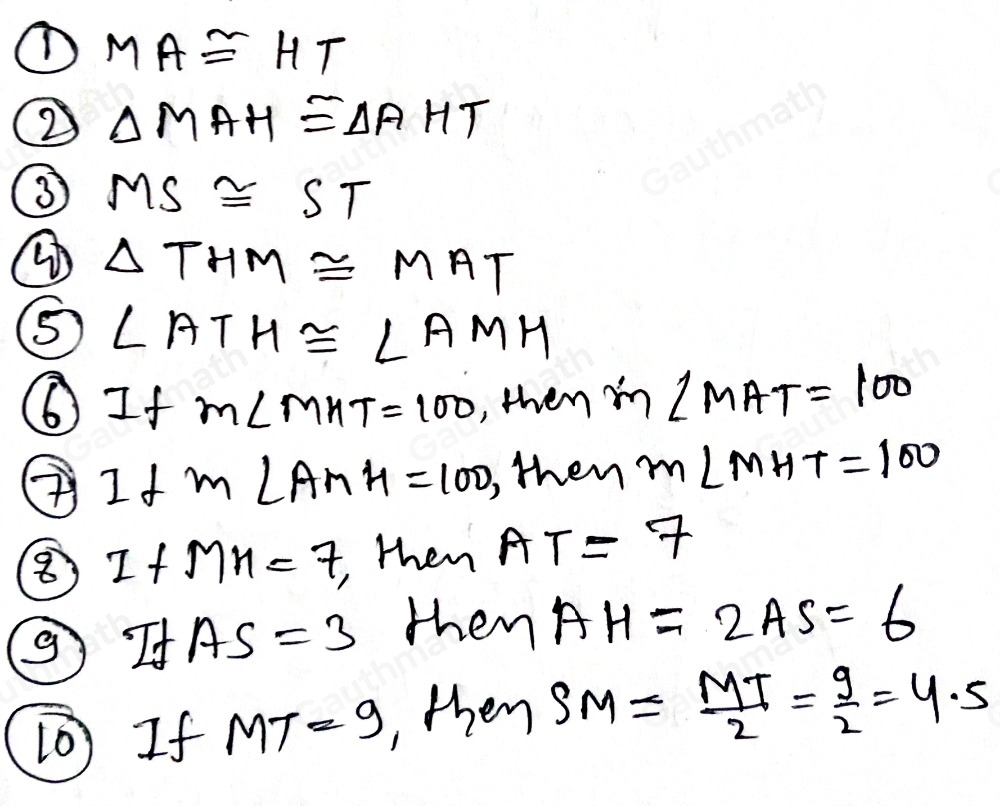 ① MA ≅ HT
② △MAH ≅ △AHT
③ MS ≅ ST
④ △ THM ≅ MAT
⑤ ∠ATH ≅ ∠AMH
⑥ If m∠MHT = 100, then m ∠MAT = 100
⑦ If m ∠AMH = 100, then m ∠MHT = 100
⑧ If MH = 7, then AT = 7
⑨ If AS = 3 then AH = 2AS = 6
⑩ If MT = 9, then SM = MT/2 = 9/2 = 4.5
Gauthmath